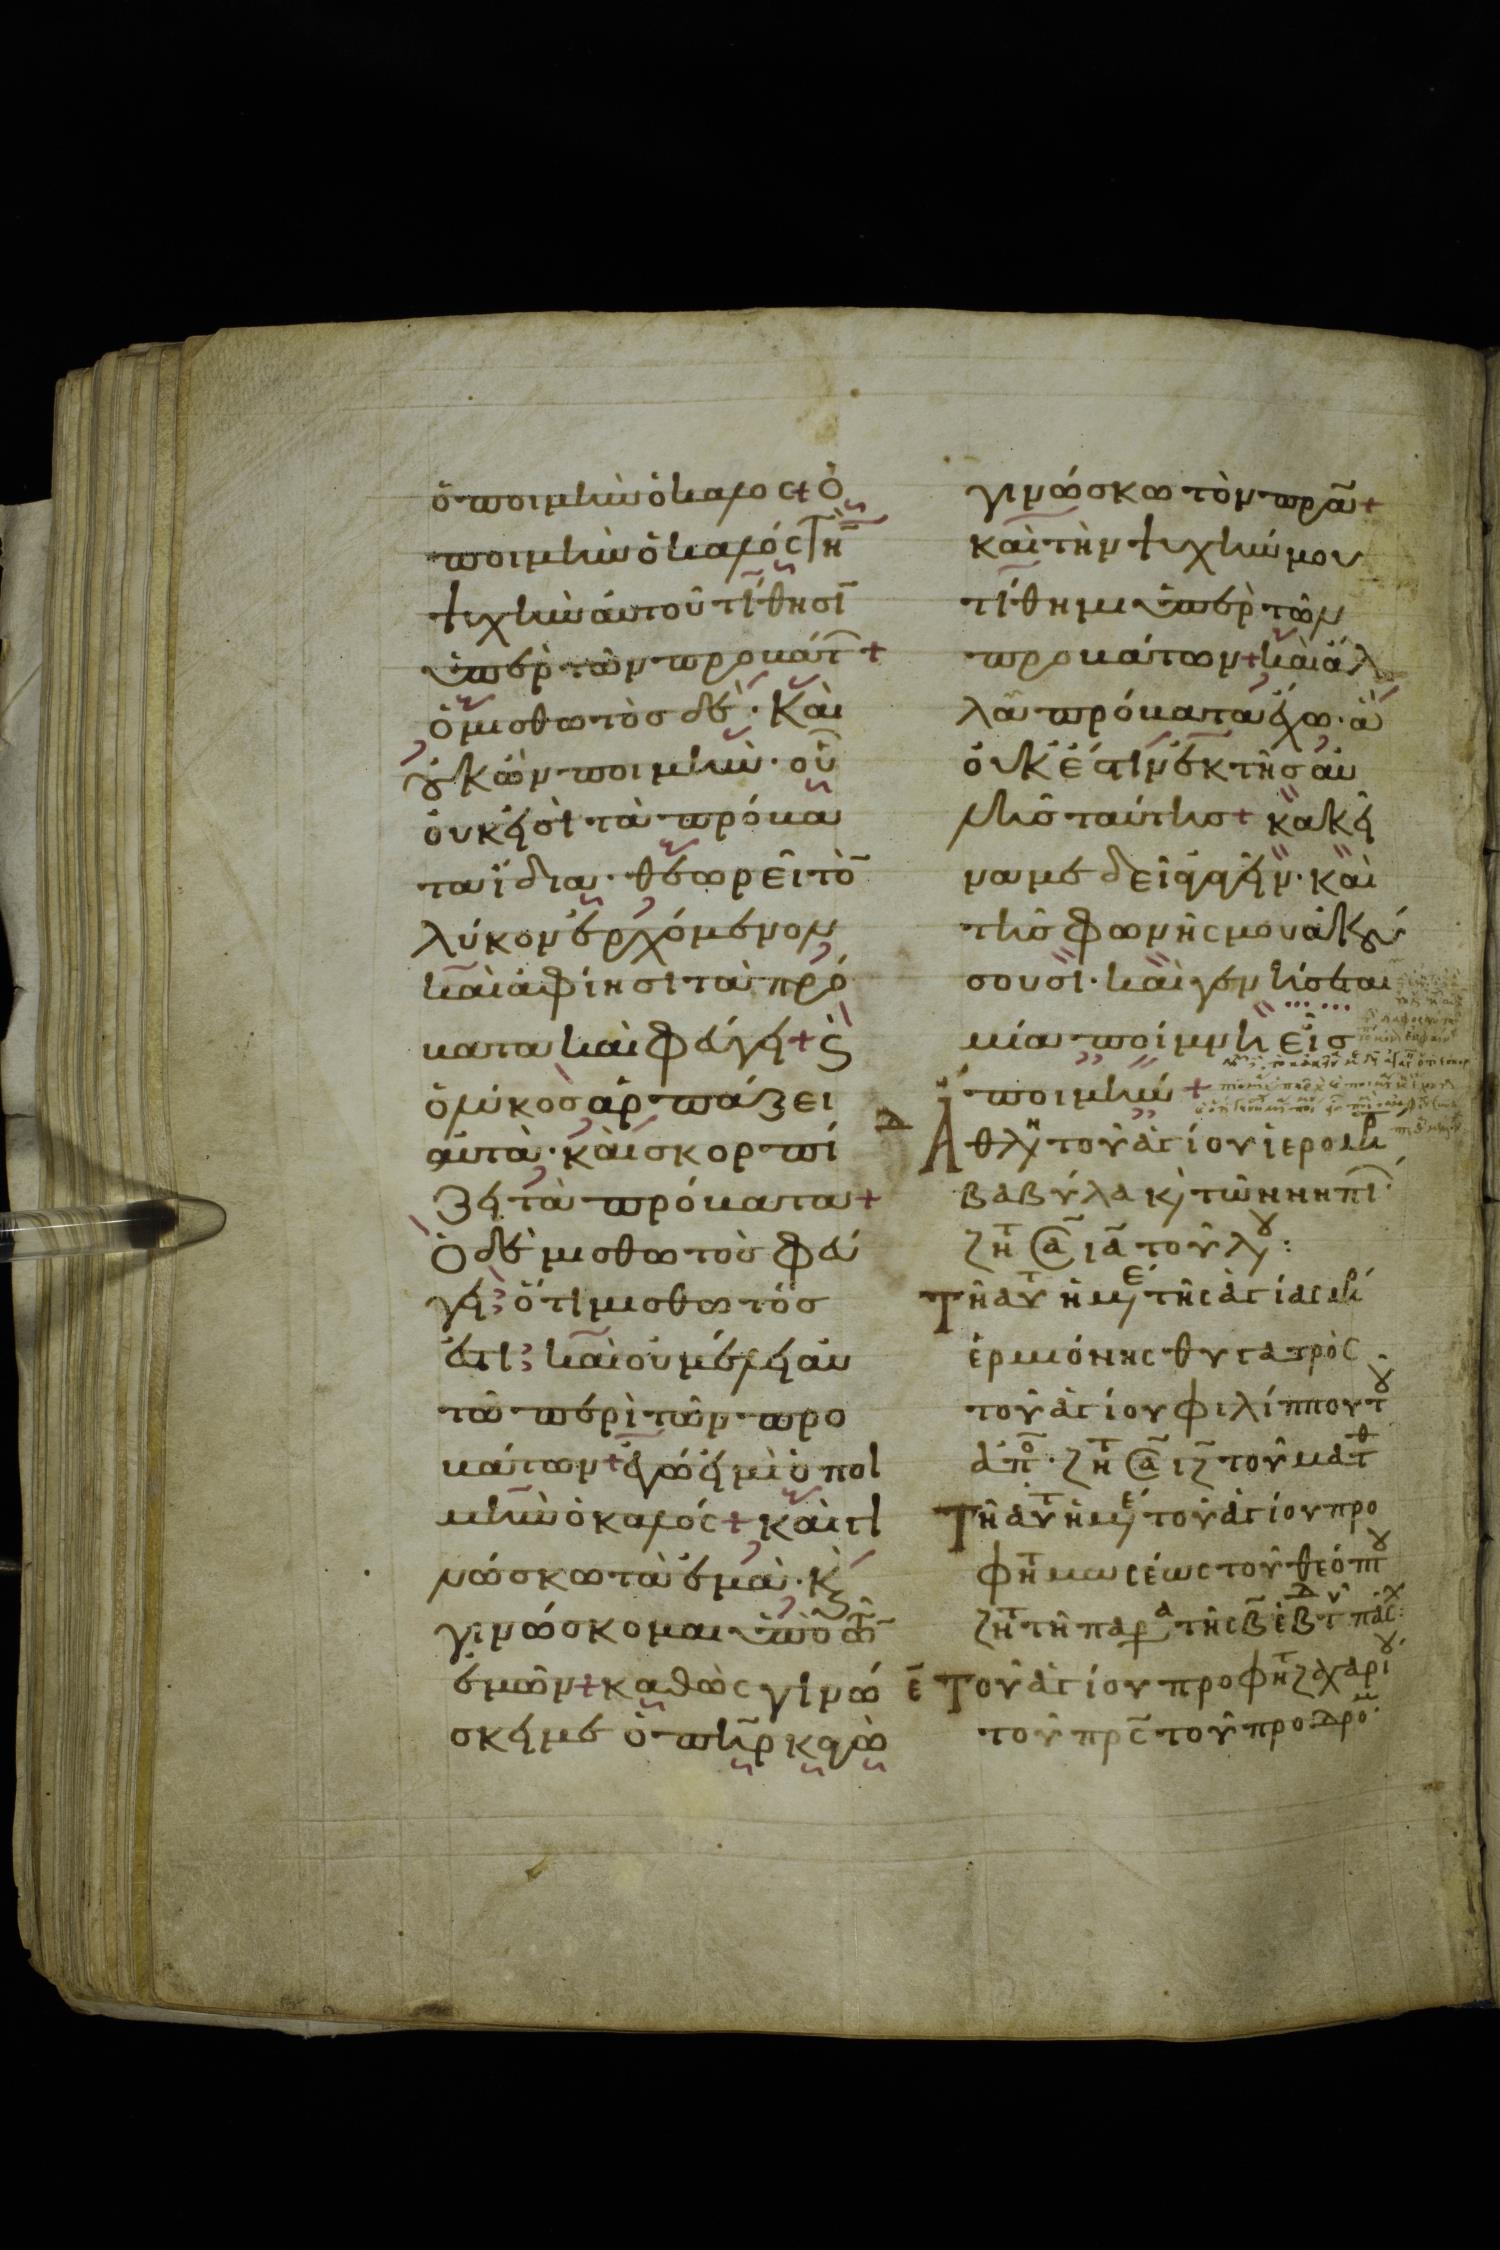 ὁ ποιμὴν ὁ καλος + Ὁ
ποιμὴν ὁ καλός τὴ̅
ψυχὴν ἀυτοῦ τίθησι̅
ὑπὲρ τῶν προβάτ +
ὁ μισθωτὸς δὲ · Καὶ
οὐκ ὢν ποιμὴν · οὗ
ὀυκ ἐισὶ τὰ πρόβα
τα ἴδια · θεωρεῖ το̅
λύκον ἐρχόμενον
καὶ ἀφίησι τὰ πρό
βατα καὶ φέυγει + ϛ
ὁ λύκος ἁρπάζει
αυτὰ · καὶ σκορπί
ζει τὰ πρόβατα +
Ὁ δὲ μισθωτὸς φέυ
γει · ὅτι μισθωτός
ἐστι · καὶ οὐ μέλει αυ
τῶ περὶ τῶν προ
βάτων + ἐγώ ἐιμὶ ὁ ποι
μὴν ὁ καλός + καὶ γι
νώσκω τὰ ἐμὰ · κ
γινώσκομαι ὑπὸ τῶ̅
ἐμῶν + καθὼς γινώ
σκει με ὁ πηρ κἀγὼ
γινώσκω τὸν πρα +
καὶ τὴν ψυχήν μου
τίθημι ὑπὲρ τῶν
προβάτων + καὶ ἄλ
λα πρόβατα ἔχω · ἃ
ὀυκ ἔστιν ἐκ τῆς αυ
λῆς ταύτης + κακεῖ
να με δεῖ ἀγαγεῖν · καὶ
τῆς φωνῆς μου ἀκού
σουσι · καὶ γενήσεται
μία ποίμνη εἷς
ποιμήν +
Δ Ἀθλη τοῦ ἁγίου ἱερομ
βαβύλα κ τῶν νηπι
ζητ Σα ια τοῦ λου :
Τῆ αυτ ἡμε τῆς ἁγίας μ
ἑρμιόνης θυγατρὸς
τοῦ ἁγίου φιλίππου του
ἀπο · ζητ Σα ιζ τοῦ ματθ
Τῆ αυτ ἡμε τοῦ ἁγίου προ
φητ μωσέως τοῦ θεόπτου
ζητ τῆ παρα τῆς β ἑβδ τ πάσχ :
ε Τοῦ ἁγίου προφητ ζαχαρίου
τοῦ πρς τοῦ προδρο